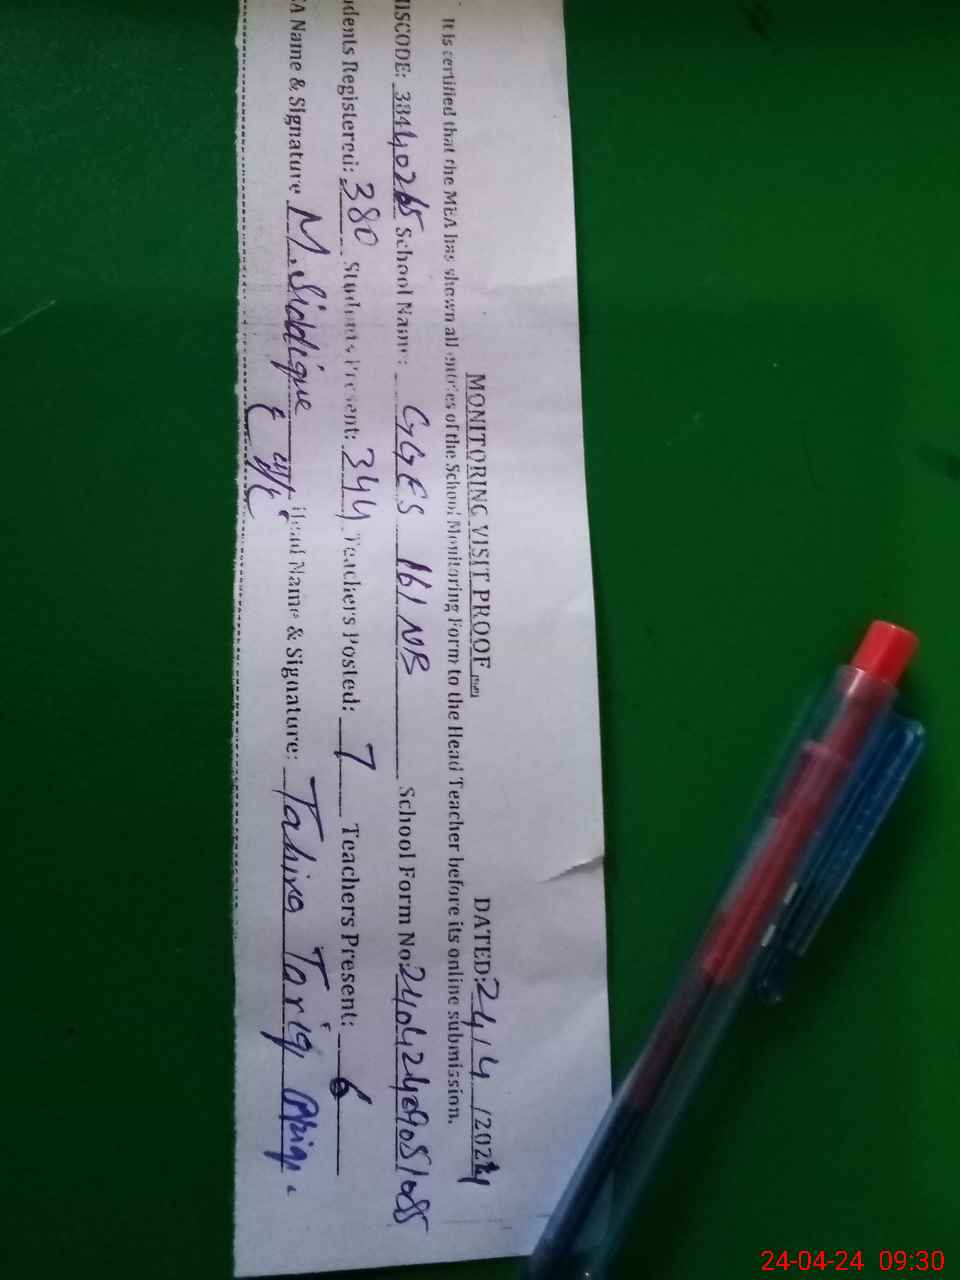 MONITORING VISIT PROOF DATED: 24/4/2024
It is certified that the MEA has shown all entries of the School Monitoring Form to the Head Teacher before its online submission.
ISCODE: 38440265 School Name: GGES 161 NB School Form No: 24042409051085
dents Registered: 380 Students Present: 344 Teachers Posted: 7 Teachers Present: 6
EA Name & Signature M. Siddique Head Name & Signature: Tahira Tariq
24-04-24 09:30